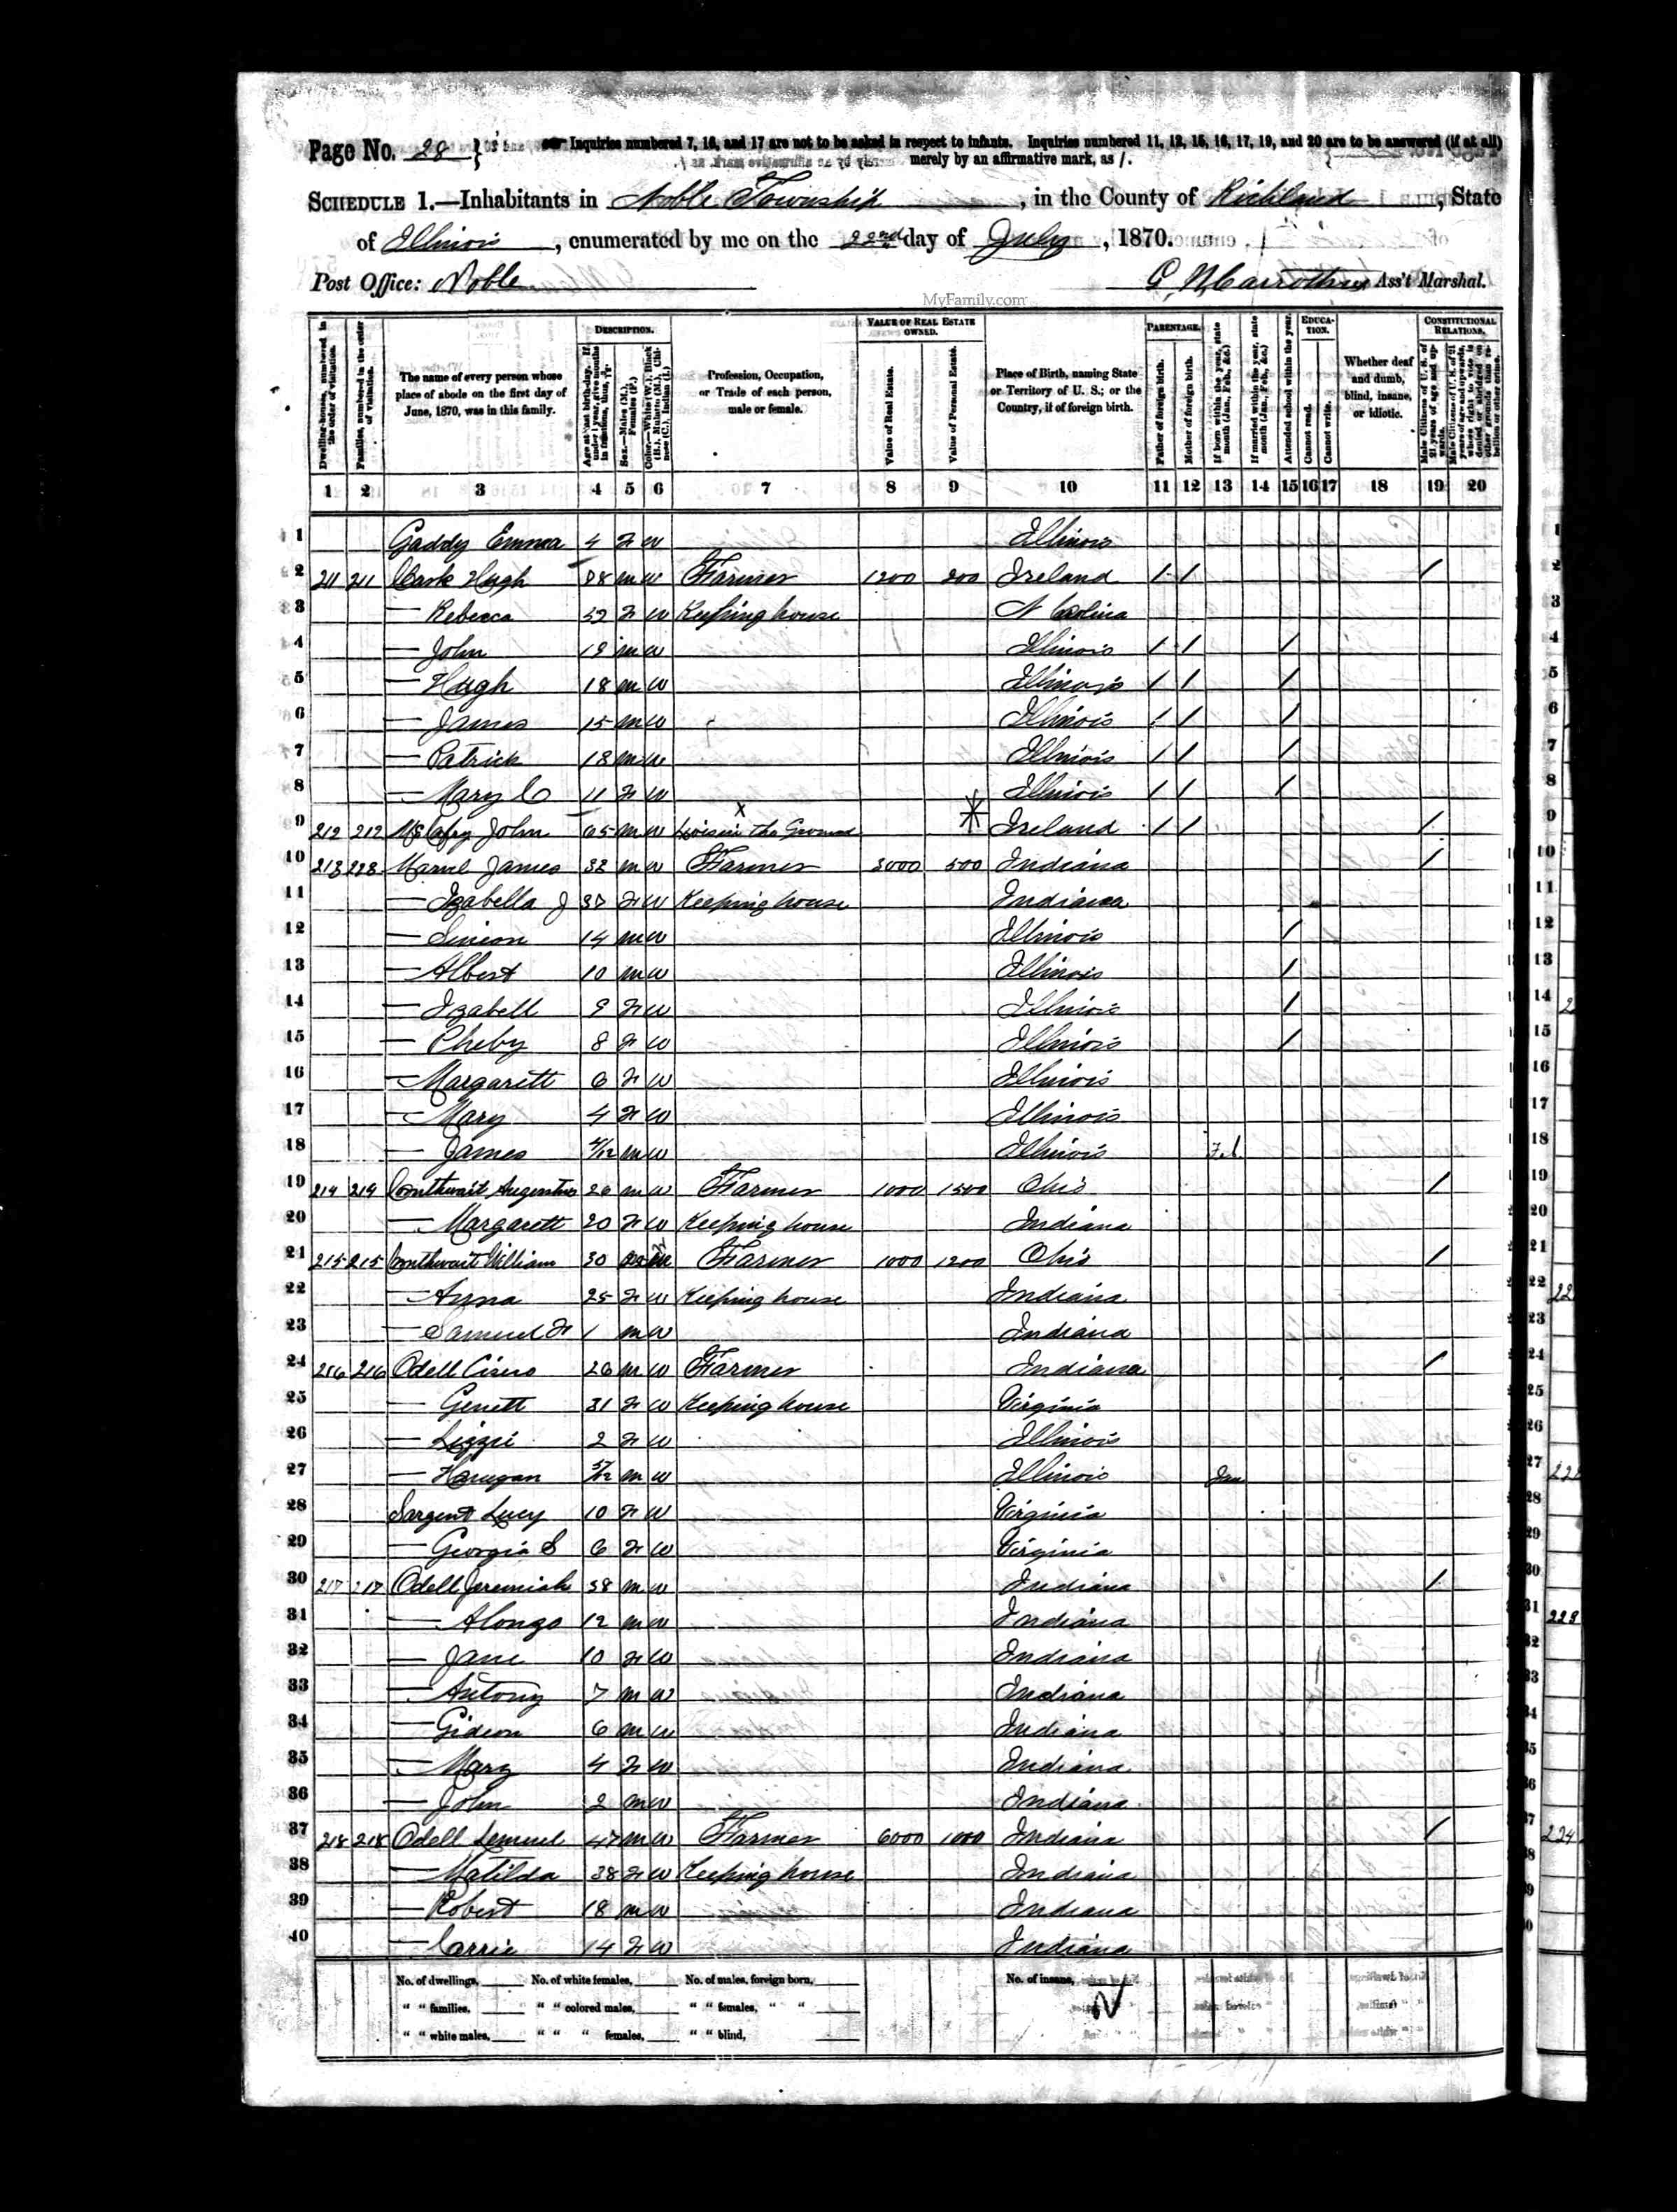 Page No. 28 } Inquiries numbered 7, 16, and 17 are not to be asked in respect to infants. Inquiries numbered 11, 12, 15, 16, 17, 19, and 20 are to be answered (if at all)
merely by an affirmative mark, as /.
SCHEDULE 1.—Inhabitants in Noble Township, in the County of Richland, State
of Illinois, enumerated by me on the 22nd day of July, 1870.
Post Office: Noble Ass't Marshal.
MyFamily.com
Dwelling-houses, numbered in the order of visitation.
Families, numbered in the order of visitation.
The name of every person whose place of abode on the first day of June, 1870, was in this family.
DESCRIPTION.
Age at last birth-day. If under 1 year, give months in fractions, thus,
Sex.—Males (M.), Females (F.)
Color.—White (W.), Black (B.), Mulatto (M.), Chinese (C.), Indian (I.)
Profession, Occupation, or Trade of each person, male or female.
VALUE OF REAL ESTATE OWNED.
Value of Real Estate.
Value of Personal Estate.
Place of Birth, naming State or Territory of U. S.; or the Country, if of foreign birth.
PARENTAGE.
Father of foreign birth.
Mother of foreign birth.
If born within the year, state month (Jan., Feb., &c.)
If married within the year, state month (Jan., Feb., &c.)
Attended school within the year.
EDUCATION.
Cannot read.
Cannot write.
Whether deaf and dumb, blind, insane, or idiotic.
CONSTITUTIONAL RELATIONS.
Male Citizens of U. S. of 21 years of age and upwards.
Male Citizens of U. S. of 21 years of age and upwards, whose right to vote is denied or abridged on other grounds than rebellion or other crime.
1 2 3 4 5 6 7 8 9 10 11 12 13 14 15 16 17 18 19 20
1 Gaddy Emma 4 F W Illinois
2 211 211 Hugh M W Farmer 1200 200 Ireland / / /
3 — Rebecca 52 F W Keeping house N Carolina
4 — John 19 M W Illinois / / /
5 — Hugh 18 M W Illinois / / /
6 — James 15 M W Illinois / / /
7 — Patrick 18 M W Illinois / / /
8 — Mary C 11 F W Illinois / / /
9 212 212 John 65 M W the Ground Ireland / / /
10 213 Marvel James 38 M W Farmer 3000 500 Indiana /
11 — Izabella J 37 F W Keeping house Indiana
12 — Simeon 14 M W Illinois /
13 — Albert 10 M W Illinois /
14 — Izabell 9 F W Illinois /
15 — Pheby 8 F W Illinois /
16 — Margarett 6 F W Illinois
17 — Mary 4 F W Illinois
18 — James 4/12 M W Illinois Feb
19 214 214 Augustus 26 M W Farmer 1000 1500 Ohio /
20 — Margarett 20 F W Keeping house Indiana
21 215 215 William 30 Farmer 1000 1200 Ohio /
22 — Anna 25 F W Keeping house Indiana
23 — Samuel F 1 M W Indiana
24 216 216 Odell Cicero 26 M W Farmer Indiana /
25 — Genett 31 F W Keeping house Virginia
26 — Lizzie 2 F W Illinois
27 — 5/12 M W Illinois Jan
28 Sargent Lucy 10 F W Virginia
29 — Georgia S 6 F W Virginia
30 217 217 Odell Jeremiah 38 M W Indiana /
31 — Alonzo 12 M W Indiana
32 — Jane 10 F W Indiana
33 — Antony 7 M W Indiana
34 — Gideon 6 M W Indiana
35 — Mary 4 F W Indiana
36 — John 2 M W Indiana
37 218 218 Odell Lemuel 47 M W Farmer 6000 1000 Indiana /
38 — Matilda 38 F W Keeping house Indiana
39 — Robert 18 M W Indiana
40 — Carrie 14 F W Indiana
No. of dwellings, No. of white females, No. of males, foreign born, No. of insane,
" " families, " " colored males, " " females, " "
" " white males, " " " females, " " blind,